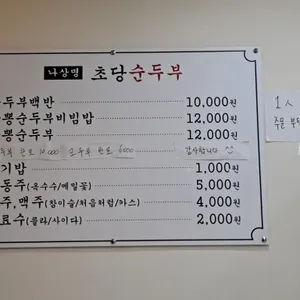 나상명 초당순두부
두부백반 10,000원
뽕순두부비빔밥 12,000원
뽕순두부 12,000원
감사합니다
기밥 1,000원
동주(옥수수/메밀꽃) 5,000원
주,맥주(참이슬/처음처럼/카스) 4,000원
료수(콜라/사이다) 2,000원
1人
주문 부탁